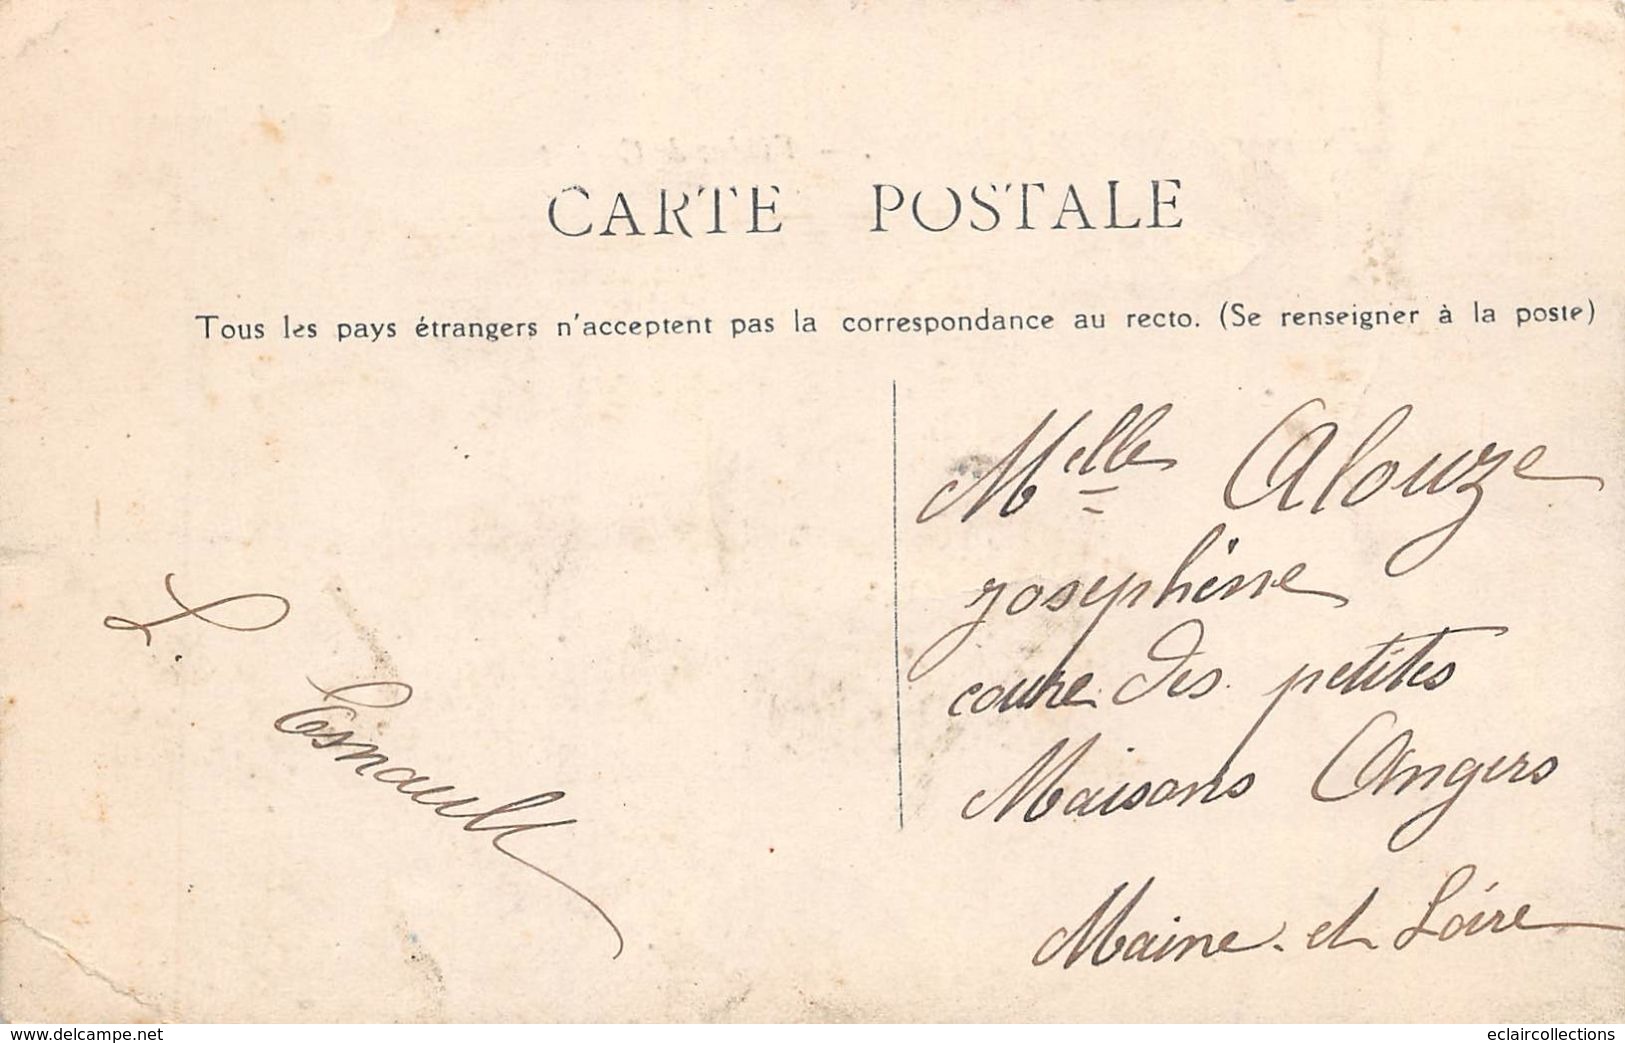 CARTE POSTALE
Tous les pays étrangers n'acceptent pas la correspondance au recto. (Se renseigner à la poste)
Melle Alouze
Josephine
coure des petites
Maisons Angers
Maine et Loire
L. Esnault
www.delcampe.net
eclaircollections